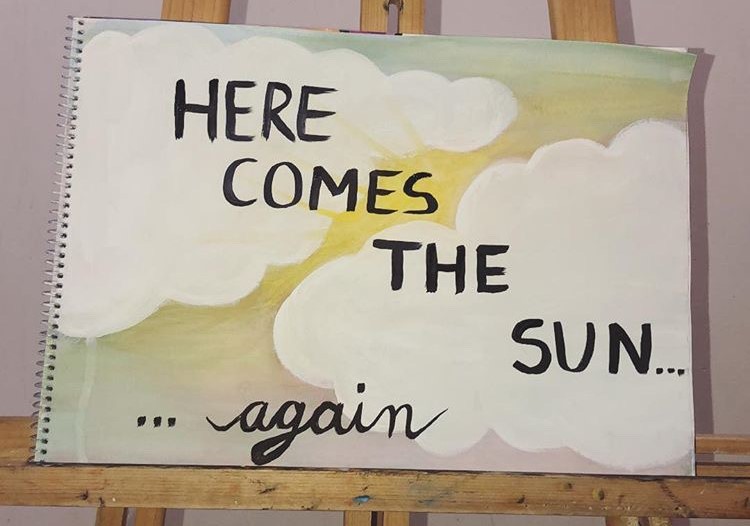 HERE
COMES
THE
SUN...
... again